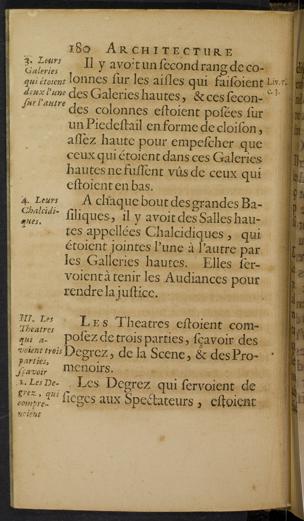 180 ARCHITECTURE
3. Leurs
Galeries
qui étoient
deux l'une
sur l'autre
Il y avoit un ſecond rang de co-
lonnes ſur les aiſles qui faiſoient
des Galeries hautes, & ces ſecon-
des colonnes eſtoient poſées ſur
un Piedeſtail en forme de cloiſon,
aſſez haute pour empeſcher que
ceux qui étoient dans ces Galeries
hautes ne fuſſent vûs de ceux qui
eſtoient en bas.
Liv. 5.
c. 3.
4. Leurs
Chalcidi-
ques.
A chaque bout des grandes Ba-
ſiliques, il y avoit des Salles hau-
tes appellées Chalcidiques, qui
étoient jointes l'une à l'autre par
les Galleries hautes. Elles ſer-
voient à tenir les Audiances pour
rendre la juſtice.
III. Les
Theatres
qui a-
voient trois
parties,
ſçavoir
1. Les De-
grez, qui
compre-
noient
LES Theatres eſtoient com-
poſez de trois parties, ſçavoir des
Degrez, de la Scene, & des Pro-
menoirs.
Les Degrez qui ſervoient de
ſieges aux Spectateurs, eſtoient